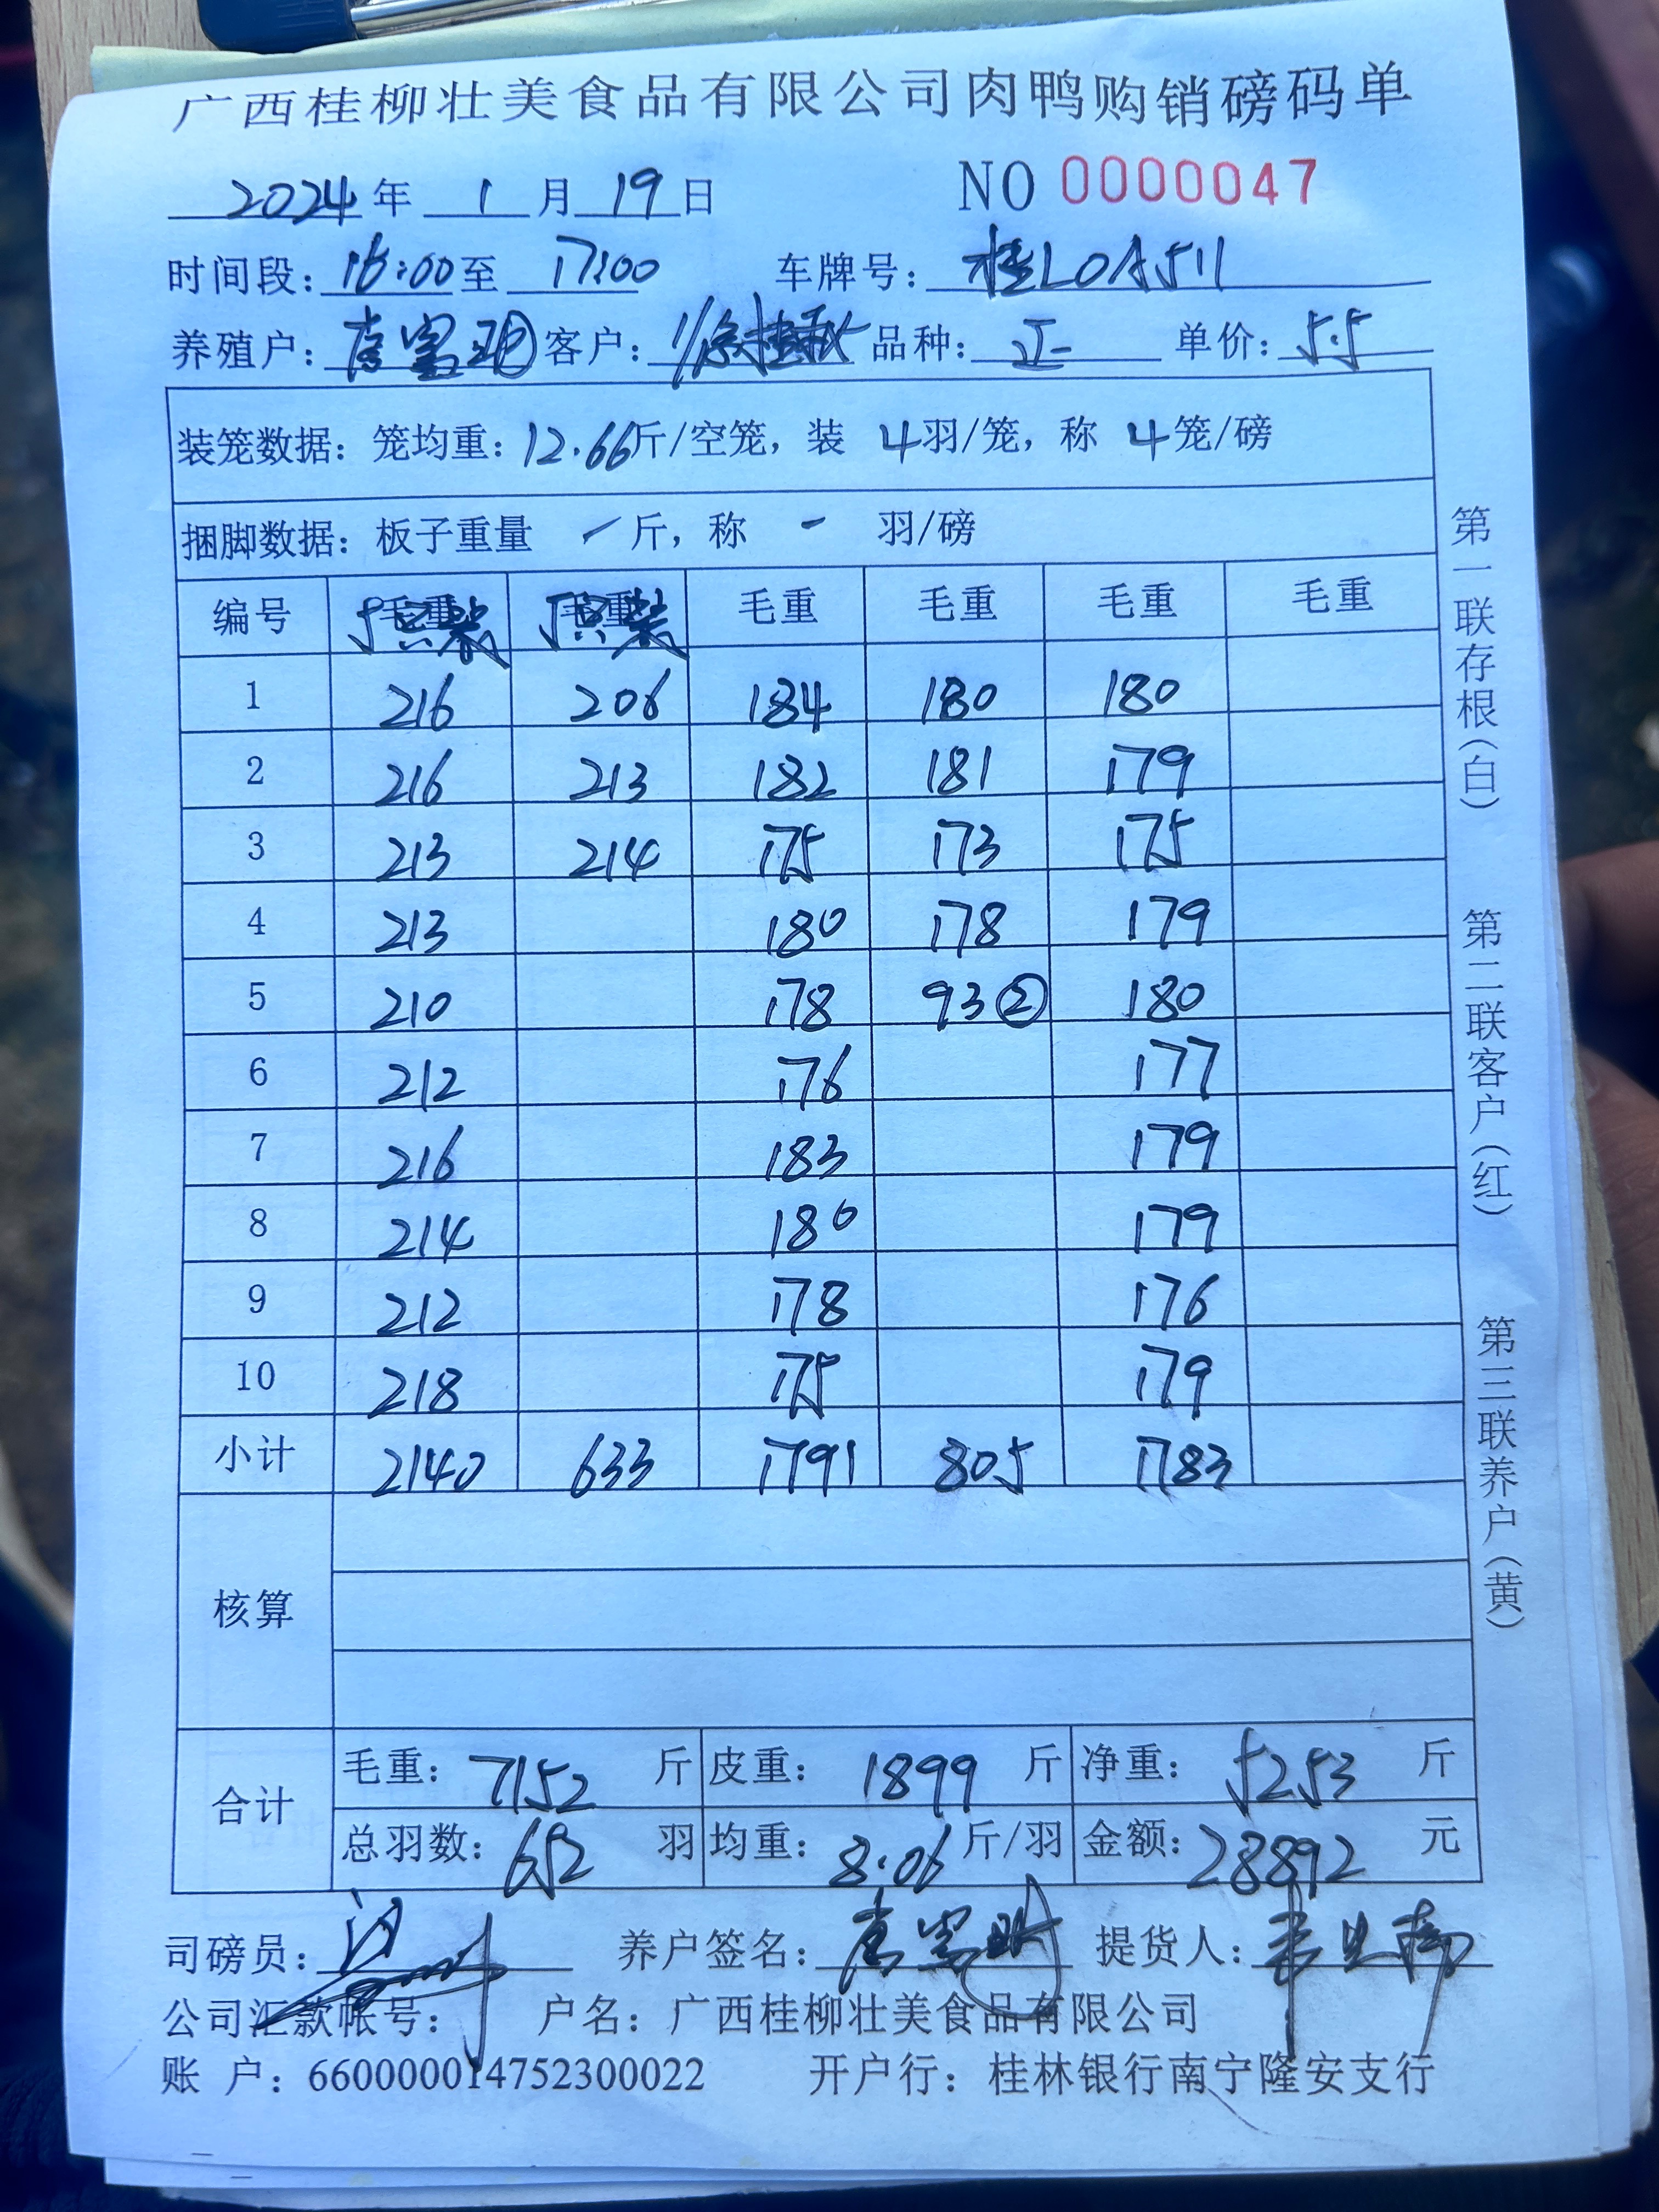 广西桂柳壮美食品有限公司肉鸭购销磅码单
2024年 1月19日 NO 0000047
时间段：16:00至 17:00 车牌号：桂L0A511
养殖户： 客户： 桂秋 品种：正 单价：5.5
装笼数据：笼均重：12.66斤/空笼，装 4羽/笼，称 4笼/磅
捆脚数据：板子重量 / 斤，称 - 羽/磅
编号 毛重 5只装 毛重 5只装 毛重 毛重 毛重 毛重
1 216 206 184 180 180
2 216 213 182 181 179
3 213 214 175 173 175
4 213 180 178 179
5 210 178 93② 180
6 212 176 177
7 216 183 179
8 214 180 179
9 212 178 176
10 218 175 179
小计 2140 633 1791 805 1783
核算
合计
毛重：7152 斤 皮重：1899 斤 净重：5253 斤
总羽数：652 羽 均重：8.06斤/羽 金额：28892 元
司磅员： 养户签名： 提货人：
公司汇款帐号： 户名：广西桂柳壮美食品有限公司
账 户：660000014752300022 开户行：桂林银行南宁隆安支行
第一联存根（白） 第二联客户（红） 第三联养户（黄）